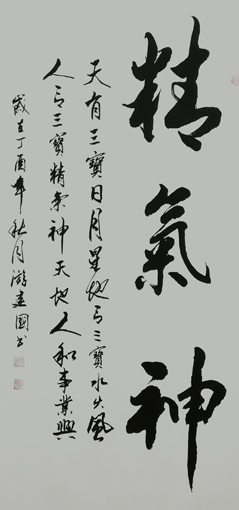 精氣神
天有三寶日月星地有三寶水火風
人有三寶精氣神天地人和事業興
歲在丁酉年秋月游建國書